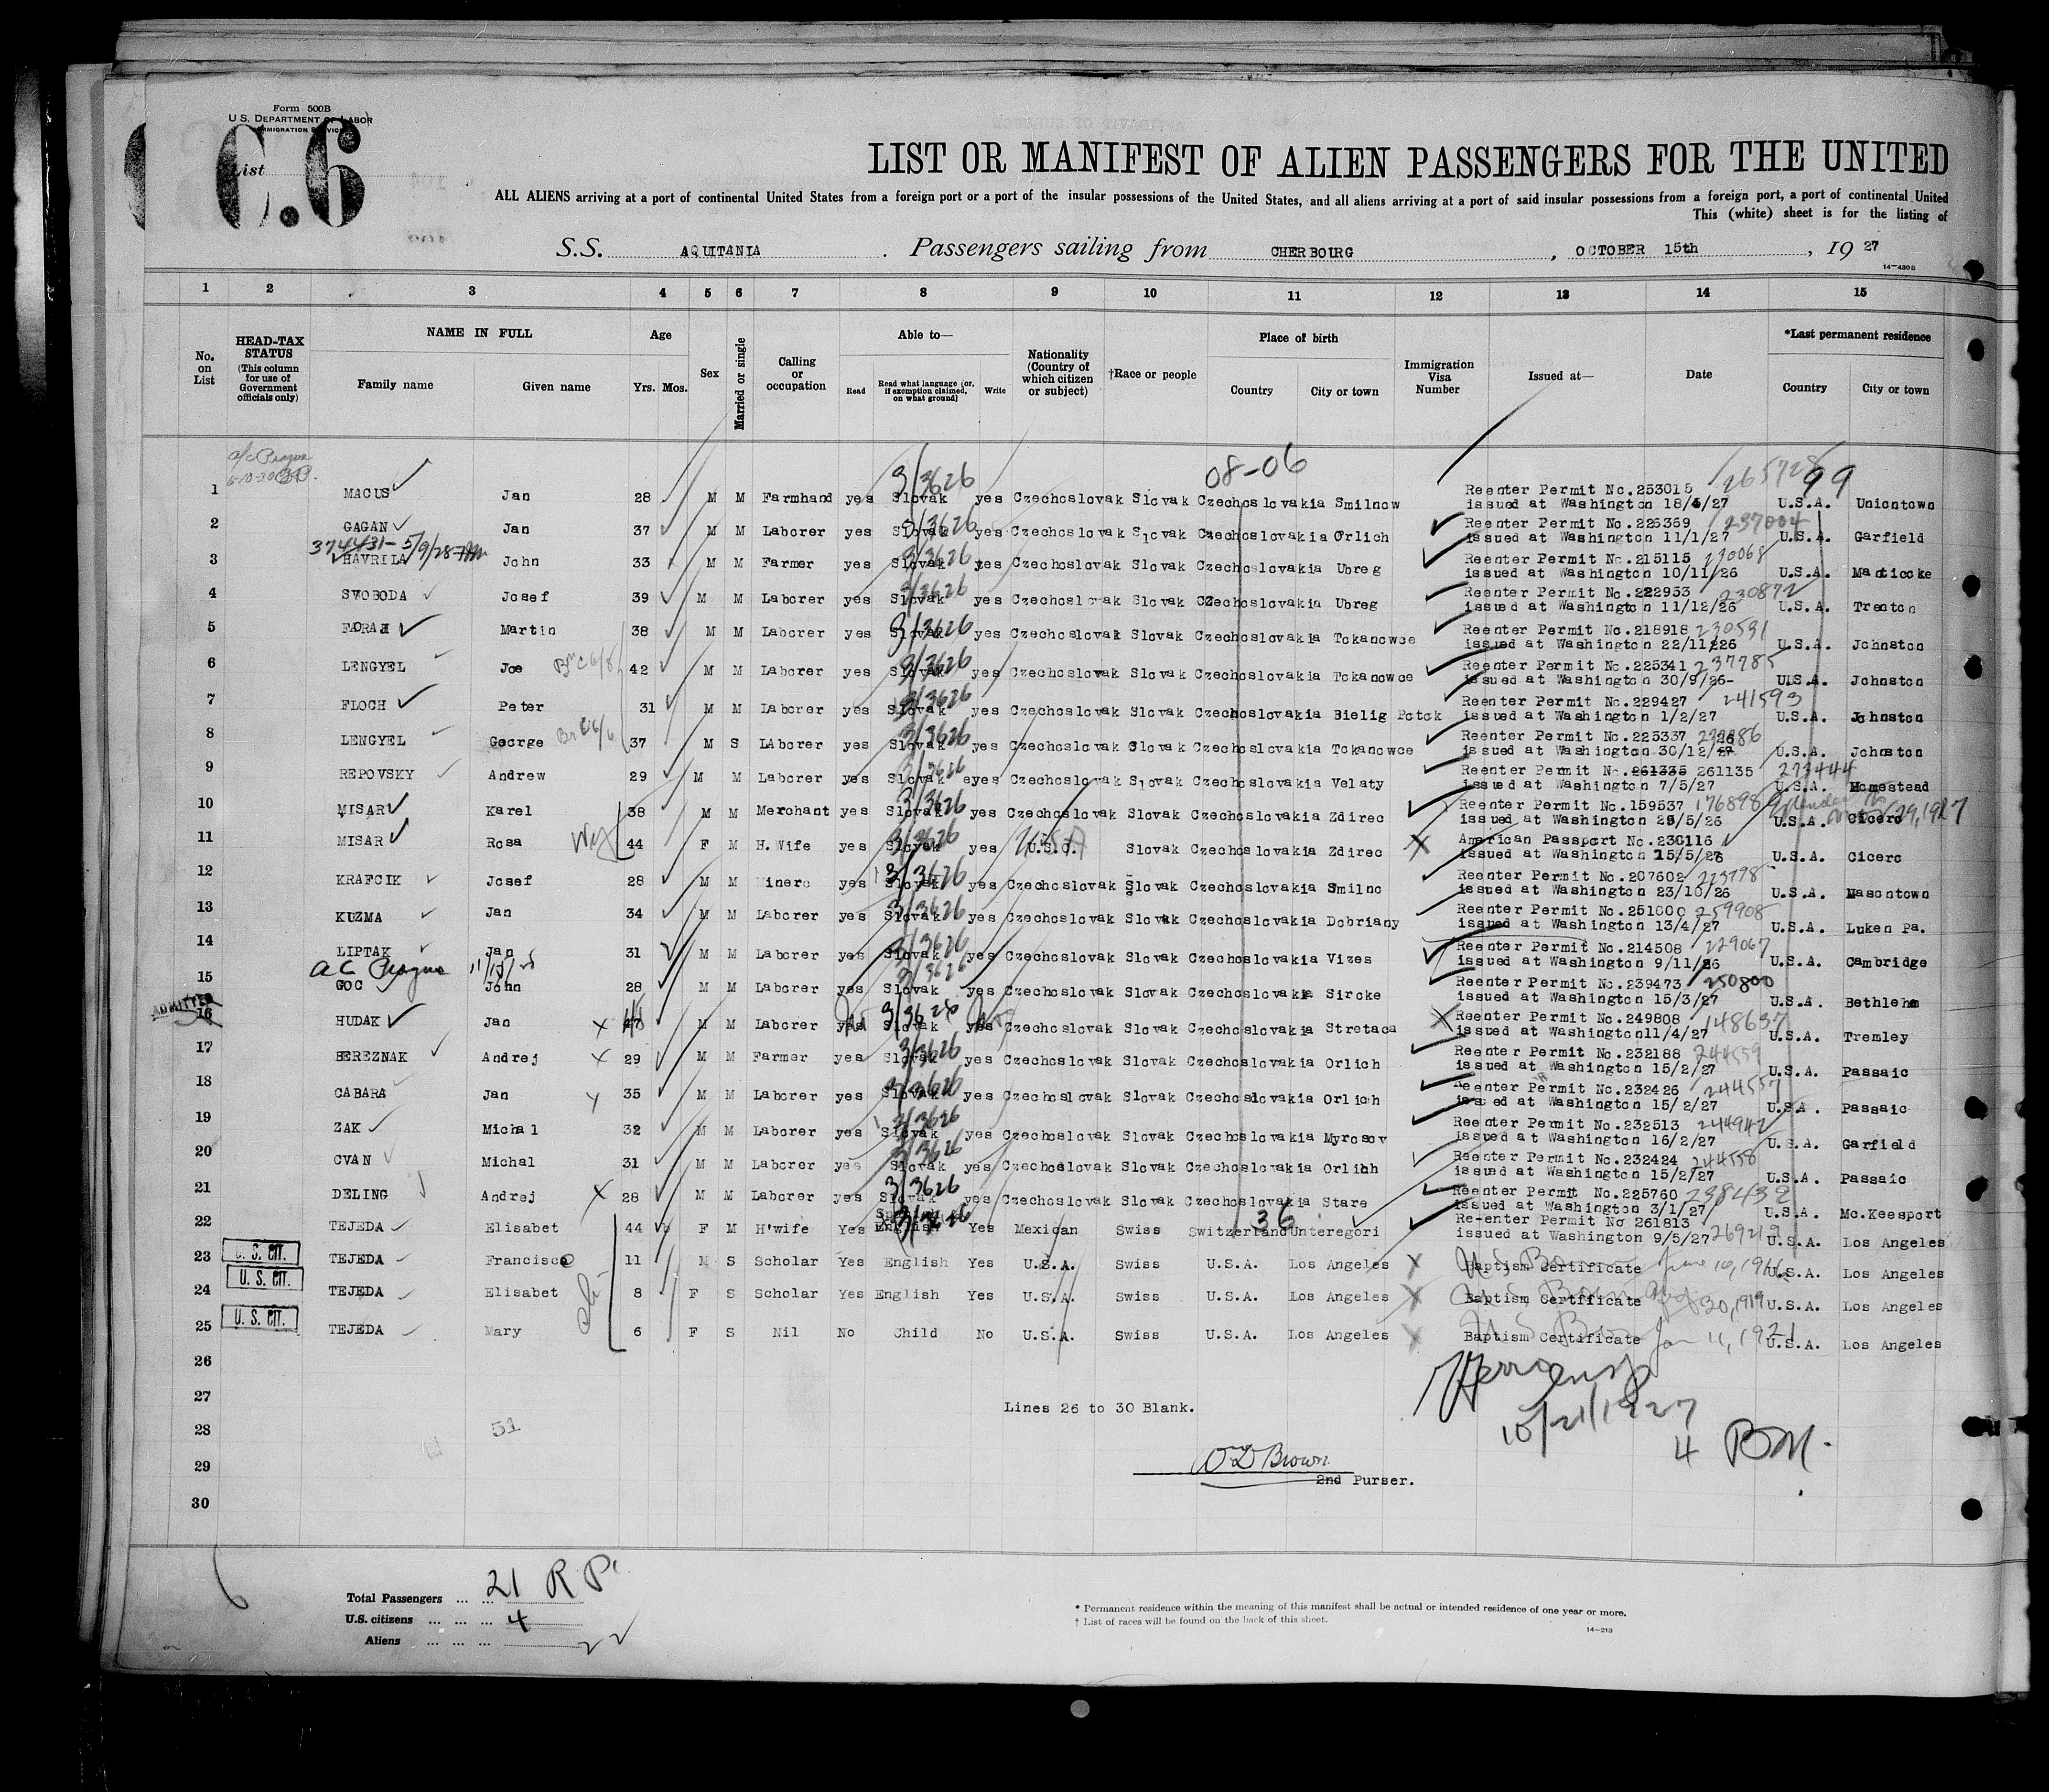 Form 500B
U. S. DEPARTMENT OF LABOR
IMMIGRATION SERVICE
List
C.6
LIST OR MANIFEST OF ALIEN PASSENGERS FOR THE UNITED
ALL ALIENS arriving at a port of continental United States from a foreign port or a port of the insular possessions of the United States, and all aliens arriving at a port of said insular possessions from a foreign port, a port of continental United
This (white) sheet is for the listing of
S.S. AQUITANIA. Passengers sailing from CHERBOURG, OCTOBER 15th, 19 27
14-430B
1 2 3 4 5 6 7 8 9 10 11 12 13 14 15
No. on List
HEAD-TAX STATUS (This column for use of Government officials only)
NAME IN FULL
Family name Given name
Age
Yrs. Mos.
Sex
Married or single
Calling or occupation
Able to—
Read Read what language (or, if exemption claimed, on what ground) Write
Nationality (Country of which citizen or subject)
†Race or people
Place of birth
Country City or town
Immigration Visa Number
Issued at—
Date
*Last permanent residence
Country City or town
a/c Prague
08-06
99
1 MACUS Jan 28 M M Farmhand yes Slovak 3/3626 yes Czechoslovak Slovak Czechoslovakia Smilnow Reenter Permit No.253015 265728
issued at Washington 18/5/27 U.S.A. Uniontown
2 GAGAN Jan 37 M M Laborer yes Slovak 3/3626 yes Czechoslovak Slovak Czechoslovakia Orlich Reenter Permit No.226369 237004
issued at Washington 11/1/27 U.S.A. Garfield
374431- 5/9/28
3 HAVRILA John 33 M M Farmer yes Slovak 3/3626 yes Czechoslovak Slovak Czechoslovakia Ubreg Reenter Permit No.215115 230068
issued at Washington 10/11/26 U.S.A. Manticoke
4 SVOBODA Josef 39 M M Laborer yes Slovak 3/3626 yes Czechoslovak Slovak Czechoslovakia Ubreg Reenter Permit No.222953 230872
issued at Washington 11/12/26 U.S.A. Trenton
5 FARAH Martin 38 M M Laborer yes Slovak 3/3626 yes Czechoslovak Slovak Czechoslovakia Tokanowce Reenter Permit No.218918 230531
issued at Washington 22/11/26 U.S.A. Johnston
6 LENGYEL Joe 42 M M Laborer yes Slovak 3/3626 yes Czechoslovak Slovak Czechoslovakia Tokanowce Reenter Permit No.225341 237785
issued at Washington 30/9/26- U.S.A. Johnston
7 FLOCH Peter 31 M M Laborer yes Slovak 3/3626 yes Czechoslovak Slovak Czechoslovakia Bielig Potok Reenter Permit No.229427 241593
issued at Washington 1/2/27 U.S.A. Johnston
8 LENGYEL George 37 M S LAborer yes Slovak 3/3626 yes Czechoslovak Slovak Czechoslovakia Tokanowce Reenter Permit No.225337
issued at Washington 30/12/26 U.S.A. Johnston
9 REPOVSKY Andrew 29 M M Laborer yes Slovak 3/3626 eyes Czechoslovak Slovak Czechoslovakia Velaty Reenter Permit No.261335 261135 273444
issued at Washington 7/5/27 U.S.A. Homestead
10 MISAR Karel 38 M M Merchant yes Slovak 3/3626 yes Czechoslovak Slovak Czechoslovakia Zdirec Reenter Permit No.159537 176898
issued at Washington 25/5/26 U.S.A. Cicero
11 MISAR Rosa 44 F M H.Wife yes Slovak 3/3626 yes U.S.A. Slovak Czechoslovakia Zdirec American Passport No.230116
issued at Washington 15/5/26 U.S.A. Cicero
12 KRAFCIK Josef 28 M M inero yes Slovak 3/3626 yes Czechoslovak Slovak Czechoslovakia Smilno Reenter Permit No.207602
issued at Washington 23/10/26 U.S.A. Masontown
13 KUZMA Jan 34 M M Laborer yes Slovak 3/3626 yes Czechoslovak Slovak Czechoslovakia Dobriany Reenter Permit No.251000 259908
issued at Washington 13/4/27 U.S.A. Luken Pa.
14 LIPTAK Jan 31 M M Laborer yes Slovak 3/3626 yes Czechoslovak Slovak Czechoslovakia Vizes Reenter Permit No.214508 229067
issued at Washington 9/11/26 U.S.A. Cambridge
ac Prague
15 GOC John 28 M M Laborer yes Slovak 3/3626 yes Czechoslovak Slovak Czechoslovakia Siroke Reenter Permit No.239473 250800
issued at Washington 15/3/27 U.S.A. Bethlehm
ADMITTED
16 HUDAK Jan M M Laborer yes Slovak 3/3626 yes Czechoslovak Slovak Czechoslovakia Stretaca Reenter Permit No.249808 148637
issued at Washington11/4/27 U.S.A. Tremley
17 BEREZNAK Andrej 29 M M Farmer yes Slovak 3/3626 yes Czechoslovak Slovak Czechoslovakia Orlich Reenter Permit No.232188 244559
issued at Washington 15/2/27 U.S.A. Passaic
18 CABARA Jan 35 M M Laborer yes Slovak 3/3626 yes Czechoslovak Slovak Czechoslovakia Orlich Reenter Permit No.232426 244557
issued at Washington 15/2/27 U.S.A. Passaic
19 ZAK Michal 32 M M Laborer yes Slovak 3/3626 yes Czechoslovak Slovak Czechoslovakia Myrosov Reenter Permit No.232513 244942
issued at Washington 16/2/27 U.S.A. Garfield
20 CVAN Michal 31 M M Laborer yes Slovak 3/3626 yes Czechoslovak Slovak Czechoslovakia Orlich Reenter Permit No.232424 244558
issued at Washington 15/2/27 U.S.A. Passaic
21 DELING Andrej 28 M M Laborer yes Slovak 3/3626 yes Czechoslovak Slovak Czechoslovakia Stare Reenter Permit No.225760 238432
issued at Washington 3/1/27 U.S.A. Mc.Keesport
22 TEJEDA Elisabet 44 F M H'wife Yes English Yes Mexican Swiss Switzerland 36 Unteregori Re-enter Permit No 261813
issued at Washington 9/5/27 269219 U.S.A. Los Angeles
U. S. CIT.
23 TEJEDA Francisco 11 M S Scholar Yes English Yes U.S.A. Swiss U.S.A. Los Angeles Baptism Certificate U.S.A. Los Angeles
U. S. CIT.
24 TEJEDA Elisabet 8 F S Scholar Yes English Yes U.S.A. Swiss U.S.A. Los Angeles Baptism Certificate 30,1919 U.S.A. Los Angeles
U. S. CIT.
25 TEJEDA Mary 6 F S Nil No Child No U.S.A. Swiss U.S.A. Los Angeles Baptism Certificate Jan 11, 1921 U.S.A. Los Angeles
26
27 Lines 26 to 30 Blank.
10/21/1927
28 51
4 BM.
29 Brown
2nd Purser.
30
Total Passengers ... ... 21 R P.
U.S. citizens ... ... ... 4
Aliens ... ... ... 22
* Permanent residence within the meaning of this manifest shall be actual or intended residence of one year or more.
† List of races will be found on the back of this sheet.
14-213